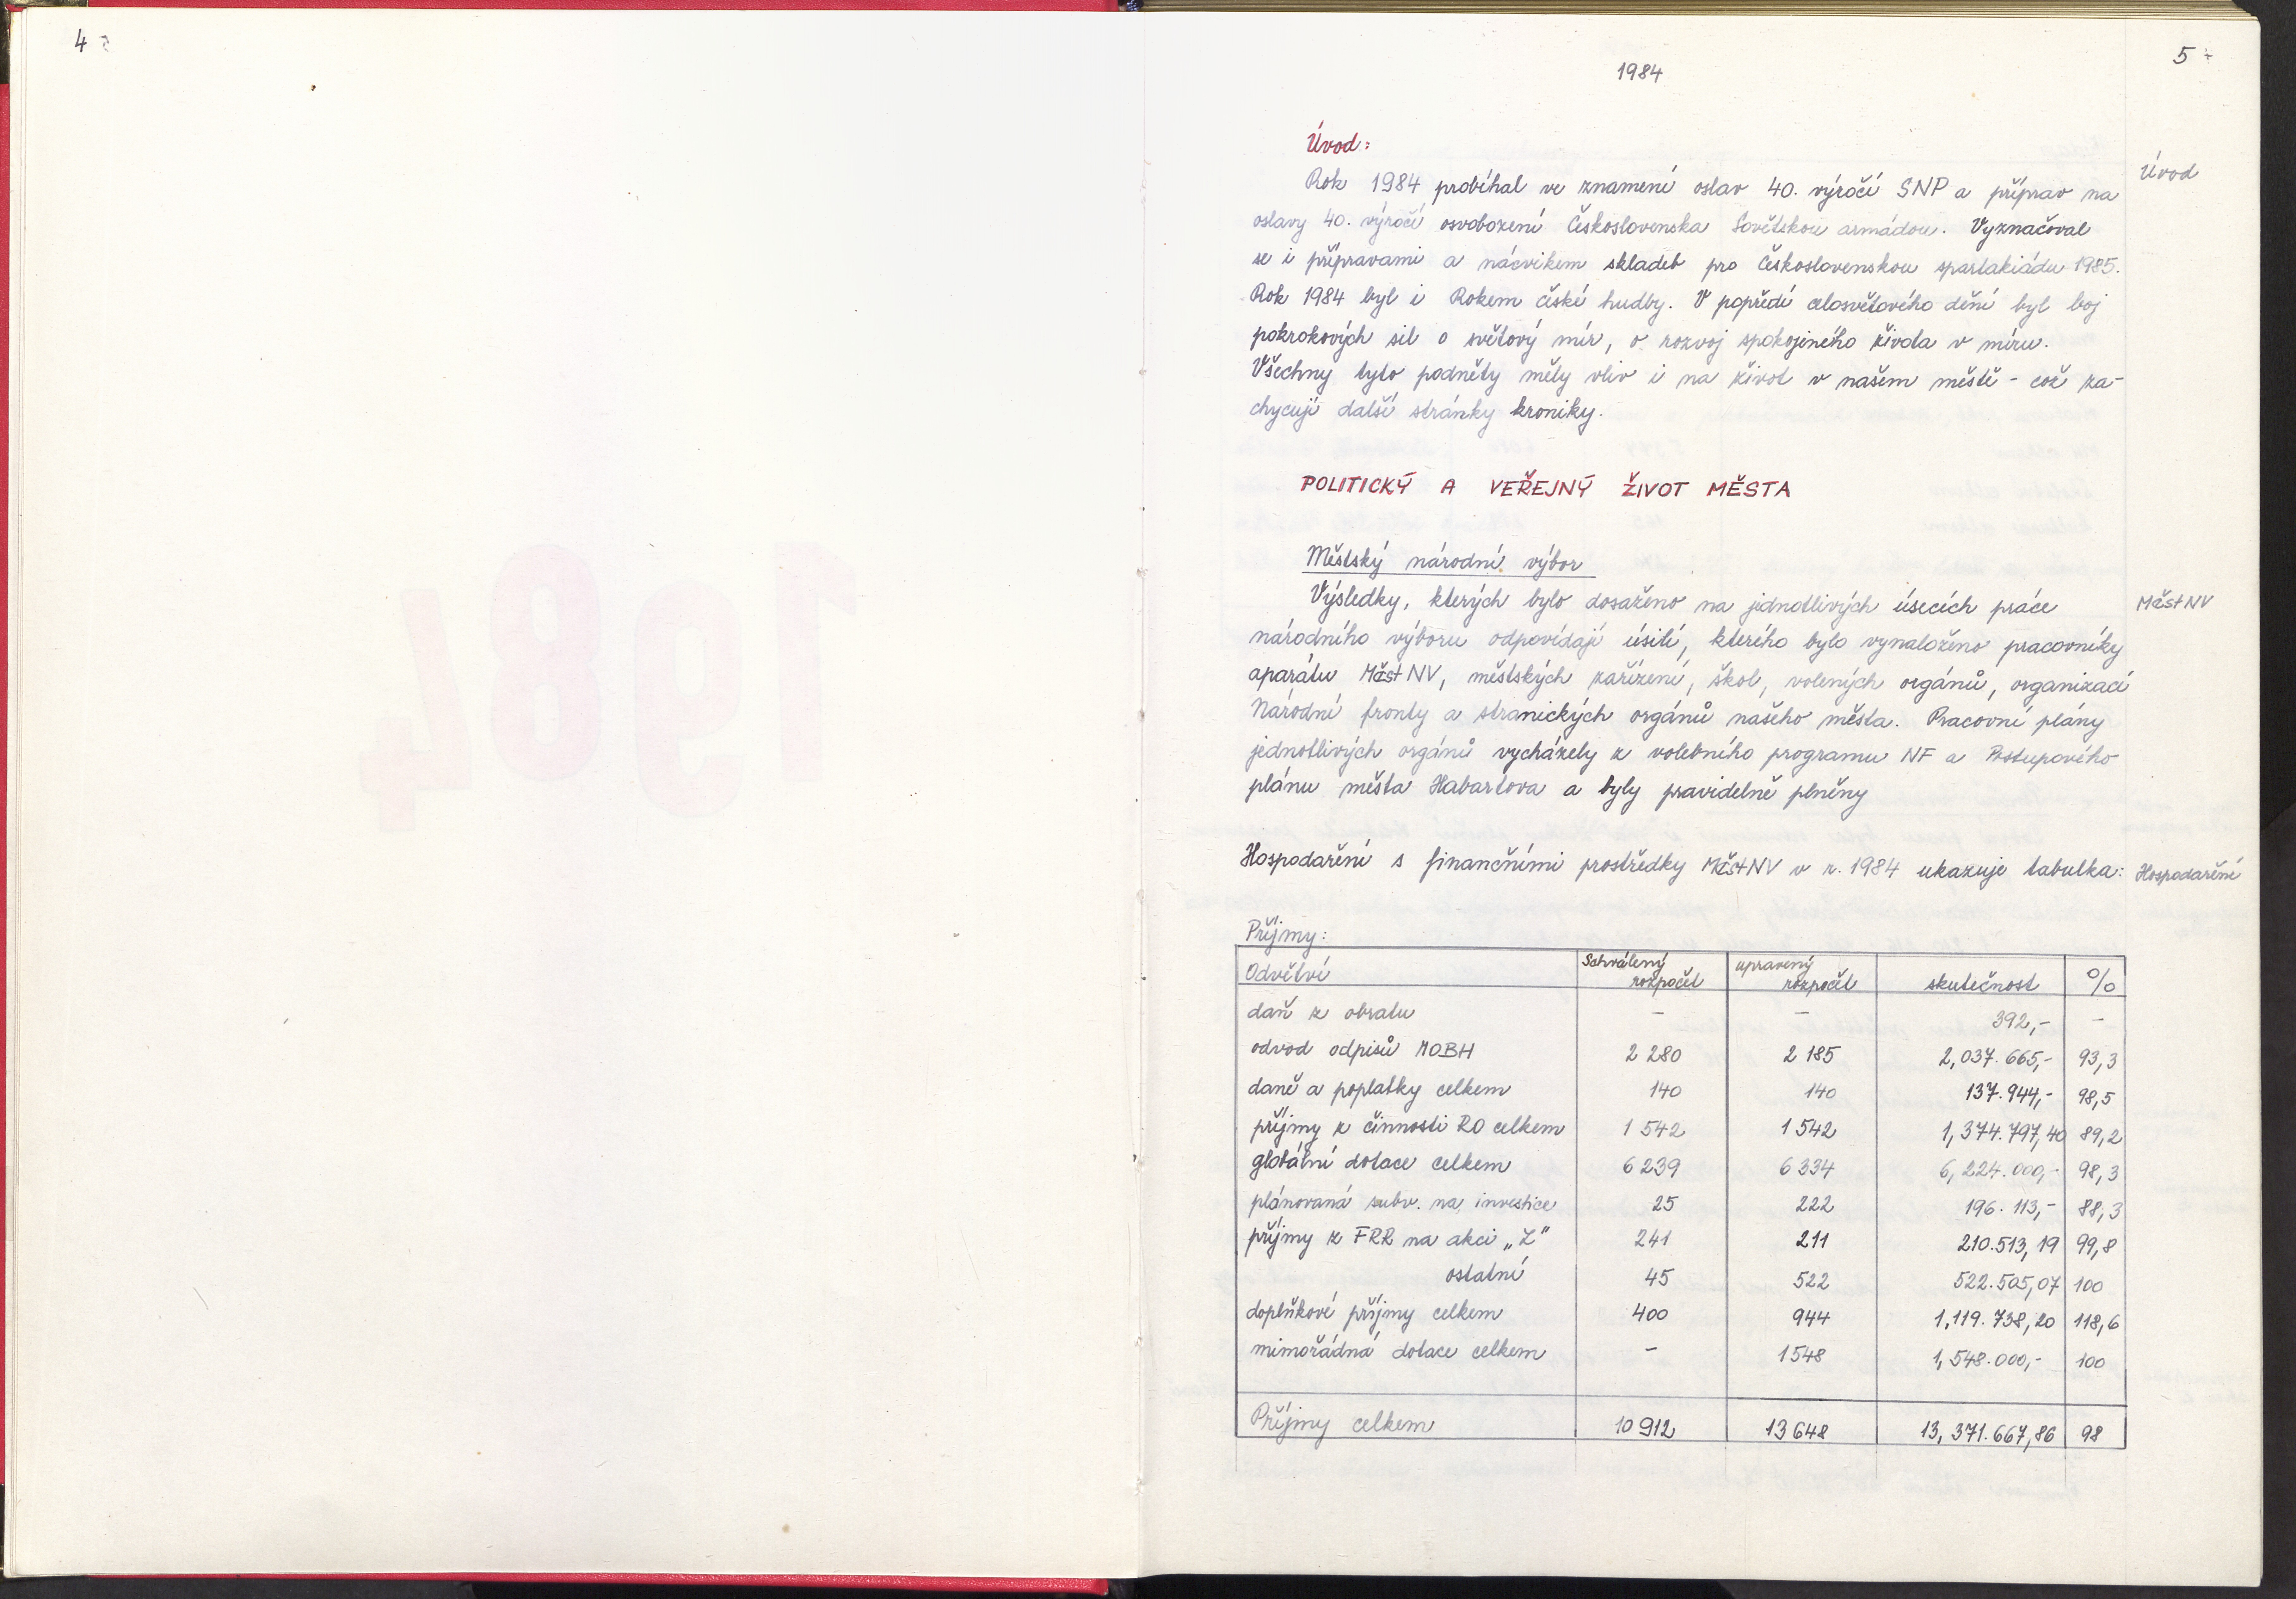 4
5
1984
Úvod:
Úvod
Rok 1984 probíhal ve znamení oslav 40. výročí SNP a příprav na
oslavy 40. výročí osvobození Československa Sovětskou armádou. Vyznačoval
se i přípravami a nácvikem skladeb pro Československou spartakiádu 1985.
Rok 1984 byl i Rokem české hudby. V popředí celosvětového dění byl boj
pokrokových sil o světový mír, o rozvoj spokojeného života v míru.
Všechny tyto podněty měly vliv i na život v našem městě - což za-
chycují další stránky kroniky.
POLITICKÝ A VEŘEJNÝ ŽIVOT MĚSTA
Městský národní výbor
Výsledky, kterých bylo dosaženo na jednotlivých úsecích práce
MěstNV
národního výboru odpovídají úsilí, kterého bylo vynaloženo pracovníky
aparátu MěstNV, městských zařízení, škol, volených orgánů, organizací
Národní fronty a stranických orgánů našeho města. Pracovní plány
jednotlivých orgánů vycházely z volebního programu NF a Postupového
plánu města Habartova a byly pravidelně plněny
Hospodaření s finančními prostředky MěstNV v r. 1984 ukazuje tabulka:
Hospodaření
Příjmy:
Odvětví Schválený rozpočet upravený rozpočet skutečnost %
daň z obratu - - 392,- -
odvod odpisů MOBH 2 280 2 185 2,037.665,- 93,3
daně a poplatky celkem 140 140 137.944,- 98,5
příjmy z činnosti RO celkem 1 542 1 542 1,374.797,40 89,2
globální dotace celkem 6 239 6 334 6,224.000,- 98,3
plánovaná subv. na investice 25 222 196.113,- 88,3
příjmy z FRR na akci „Z" 241 211 210.513,19 99,8
ostatní 45 522 522.505,07 100
doplňkové příjmy celkem 400 944 1,119.738,20 118,6
mimořádná dotace celkem - 1548 1,548.000,- 100
Příjmy celkem 10 912 13 648 13,371.667,86 98